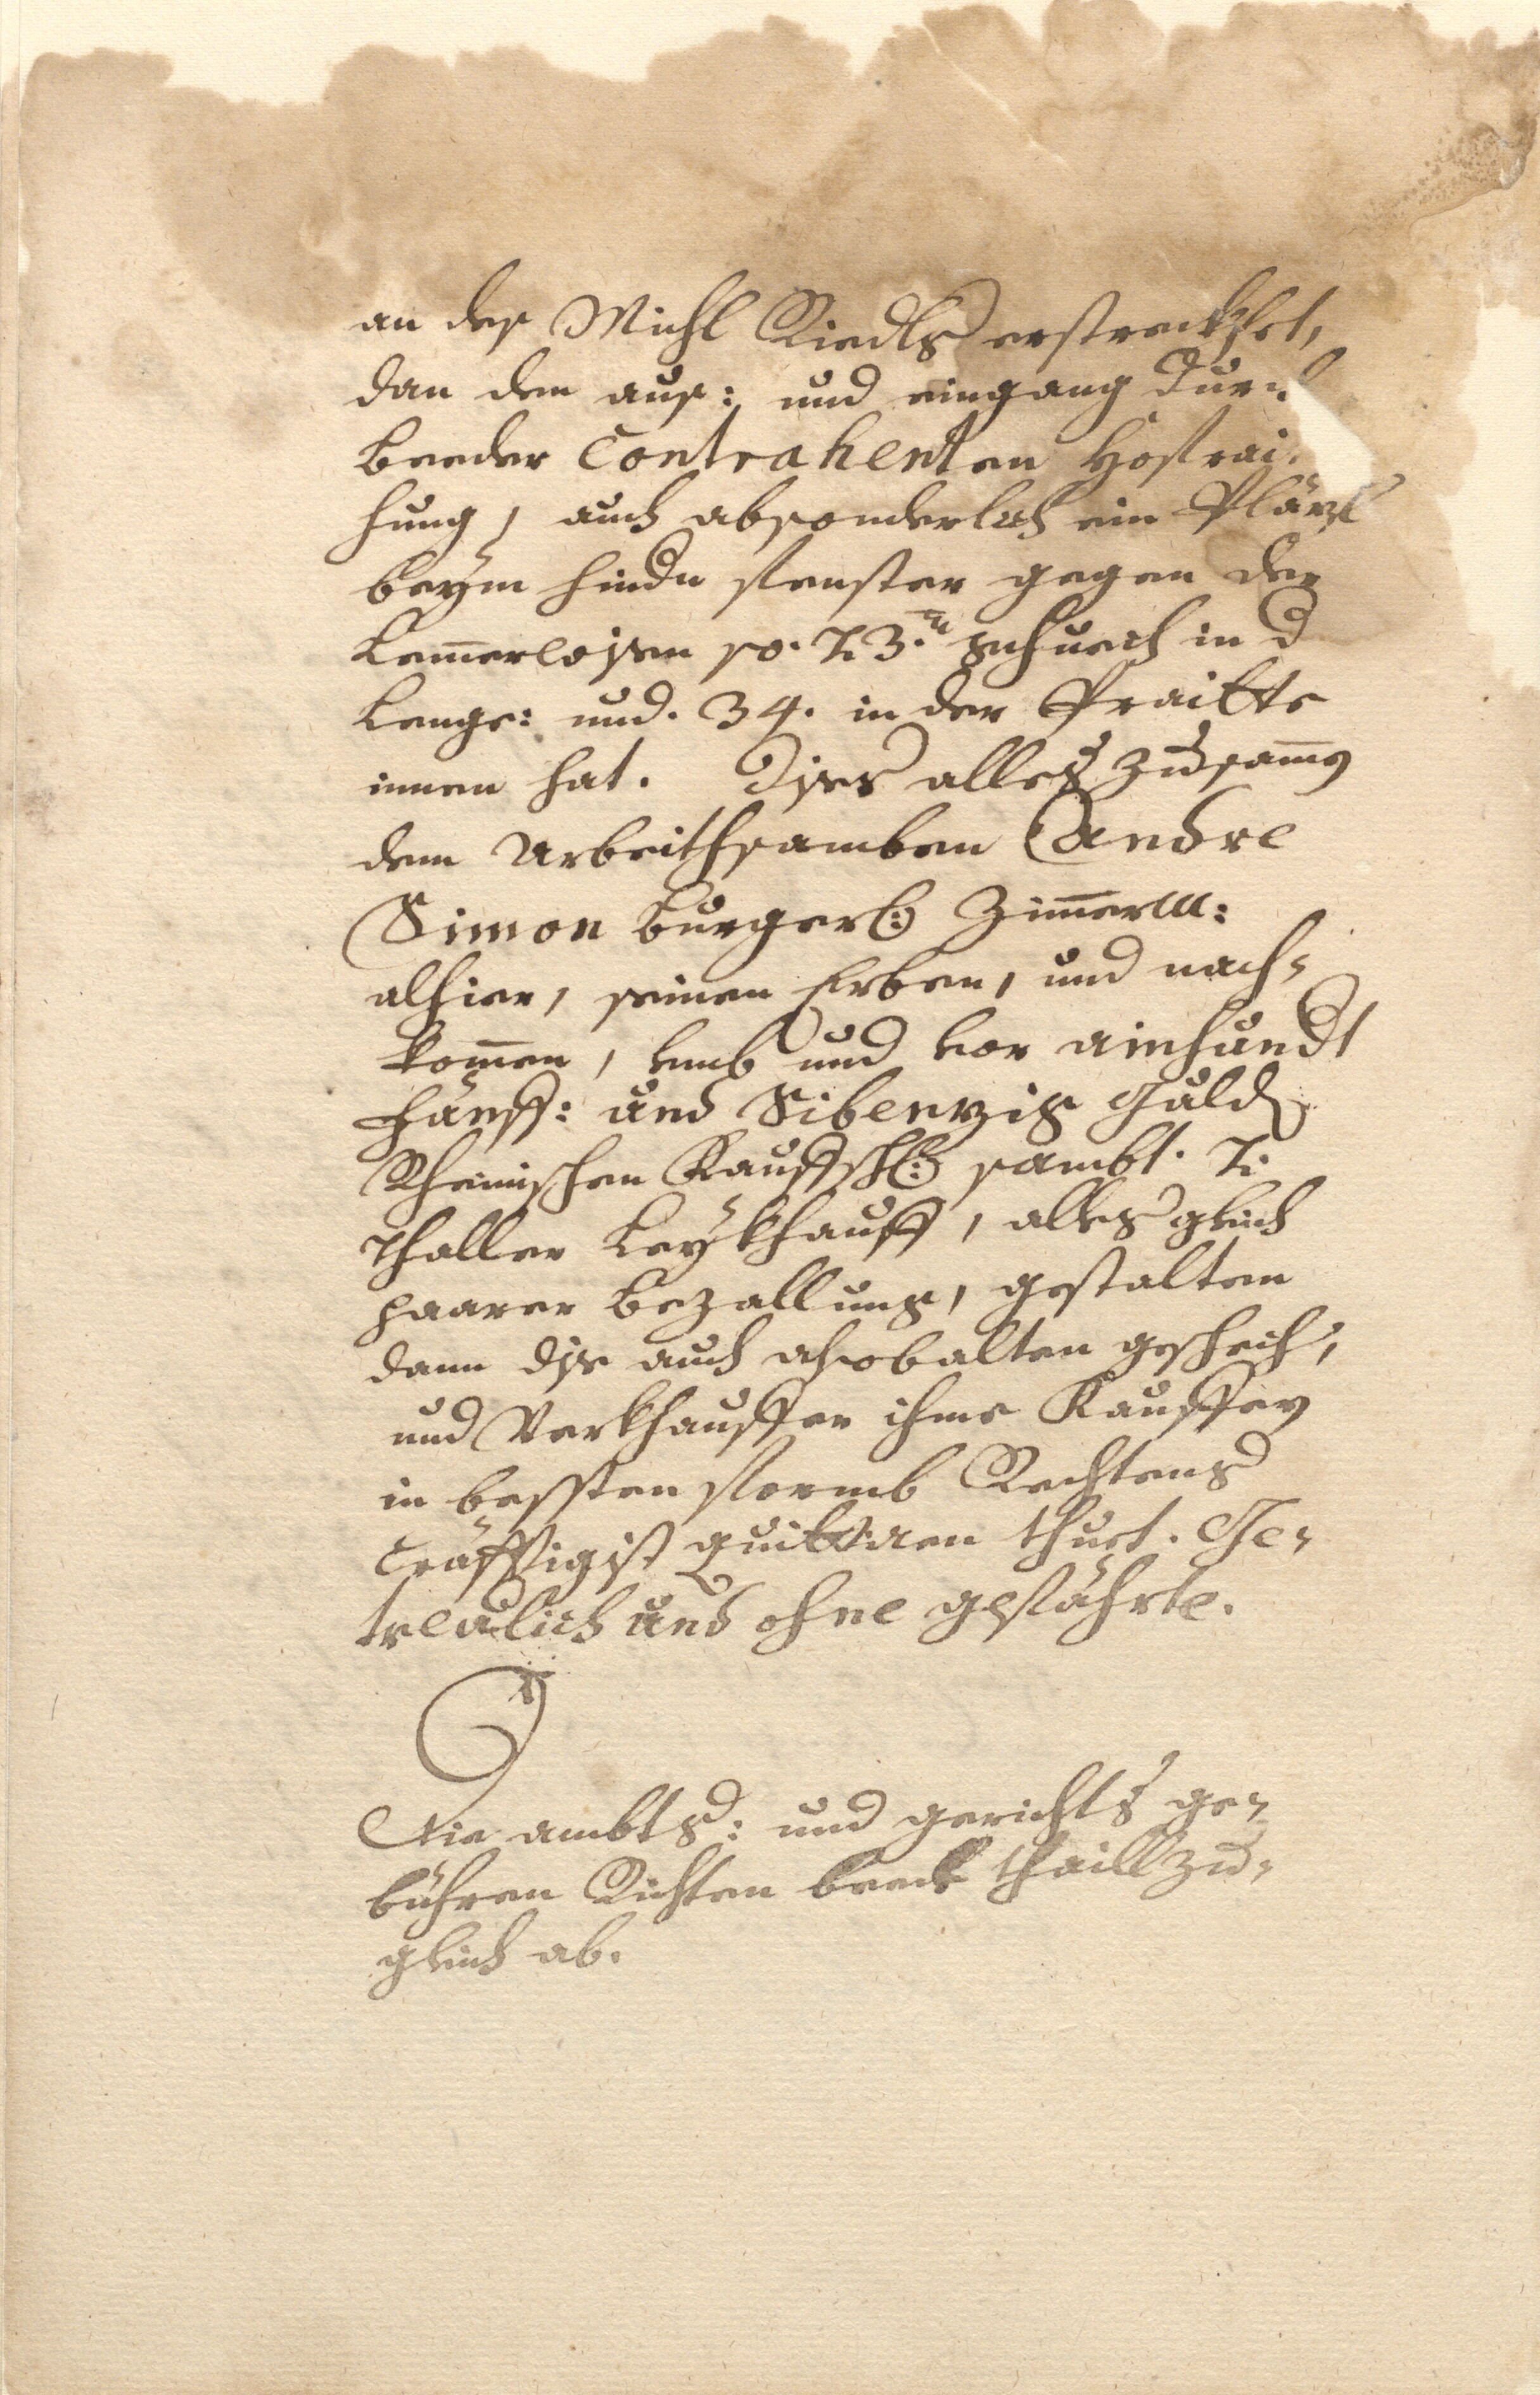 an des Michl Riedls erstreckhet,
dan den aus: und eingang durch
beeder Contrahenten Hofrai-
hung, auch absonderlich ein Pläzl
beym hindn fenster gegen der
so. 23. schuech in d
lenge: und. 34. in der Praitte
innen hat. dises alles zusamen
dem Arbeithsamben Andre
Simon burgerl: Zimmerm:
alhier, seinen Erben, und nach-
kommen, umb und vor ainhundt
fünff: und Sibenzig Guld
Rheinischen Kauffschl: sambt. 2.
Thaller Leykhauff, alles gleich
paarer bezallung, gestalten
dann dis auch alsobalten geschech,
und Verkhauffer ihme Kauffer
in bessten formb Rechtens
cräfftigist quittiren thuet. Ge-
treulich und ohne gefährte.
Die ambts: und gerichts ge-
bühren Richten beede thaill zu-
gleich ab.